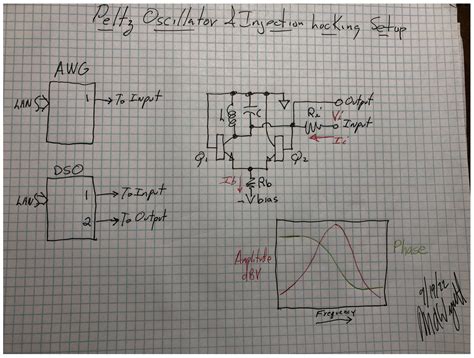 Peltz Oscillator & Injection Locking Setup
AWG
LAN
1
To Input
DSO
LAN
1
To Input
2
To Output
L
C
Output
Ri
Vi
Input
Ii
Q1
Q2
Ib
Rb
-Vbias
Amplitude
dBV
Phase
Frequency
9/19/22